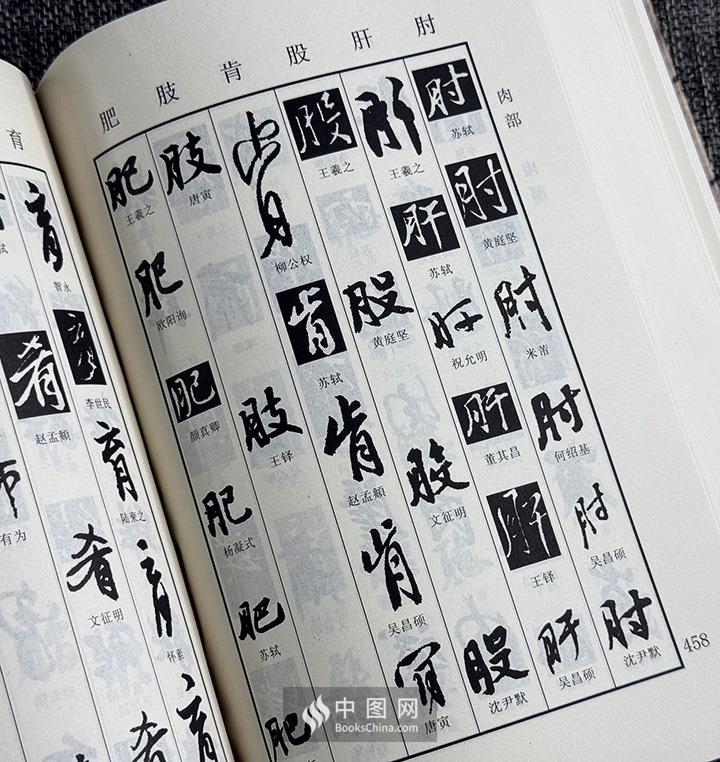 肥 肢 肯 股 肝 肘
肉部
肘
苏轼
肘
黄庭坚
肘
米芾
肘
何绍基
肘
吴昌硕
肘
沈尹默
肝
王羲之
肝
苏轼
肝
祝允明
肝
董其昌
肝
王铎
肝
吴昌硕
股
王羲之
股
黄庭坚
股
文征明
股
沈尹默
肯
柳公权
肯
苏轼
肯
赵孟頫
肯
吴昌硕
肯
唐寅
肢
唐寅
肢
王铎
肥
王羲之
肥
欧阳询
肥
颜真卿
肥
杨凝式
肥
苏轼
肥
458
育
育
智永
育
李世民
育
陆柬之
育
怀素
育
肴
赵孟頫
肴
文征明
肴
有为
中图网
BooksChina.com